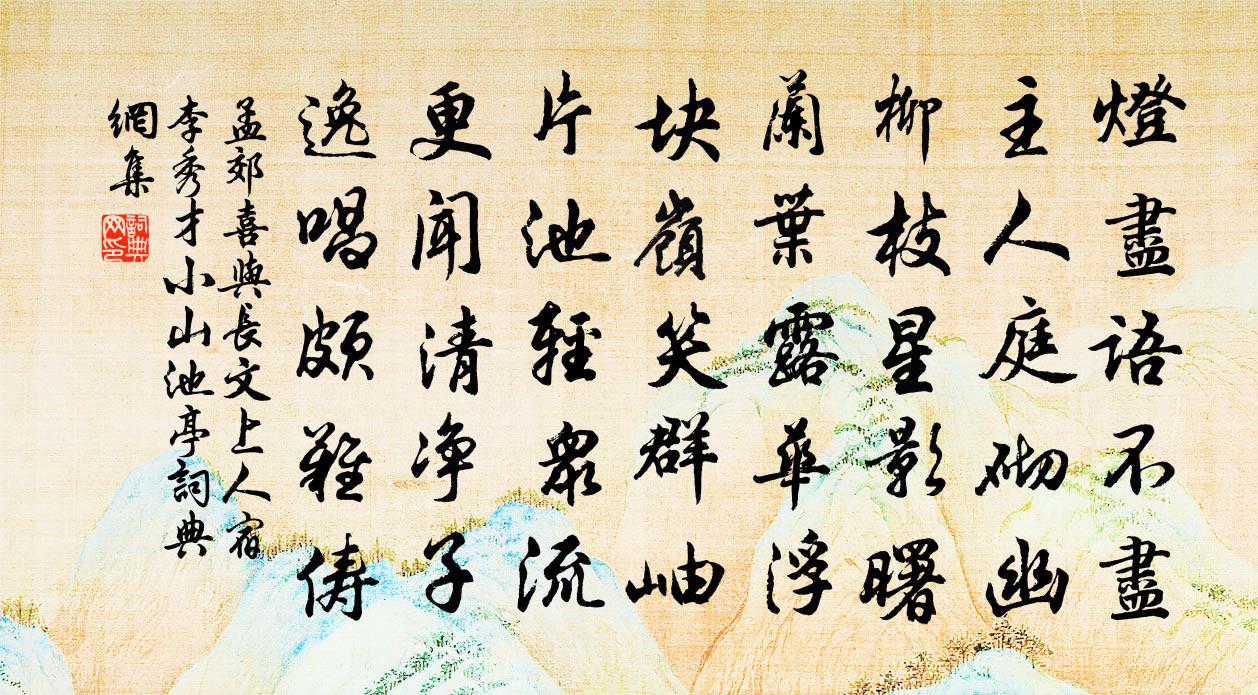 燈盡語不盡
主人庭砌幽
柳枝星影曙
蘭葉露華浮
块嶺笑群岫
片池輕眾流
更聞清净子
逸唱頗難儔
孟郊喜與長文上人宿
李秀才小山池亭詞典
網集
詞典網印